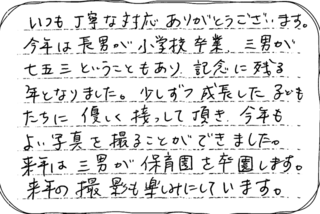 いつも丁寧な対応ありがとうございます。
今年は長男が小学校卒業、三男が
七五三ということもあり、記念に残る
年となりました。少しずつ成長した子ども
たちに優しく接っして頂き、今年も
よい写真を撮ることができました。
来年は三男が保育園を卒園します。
来年の撮影も楽しみにしています。